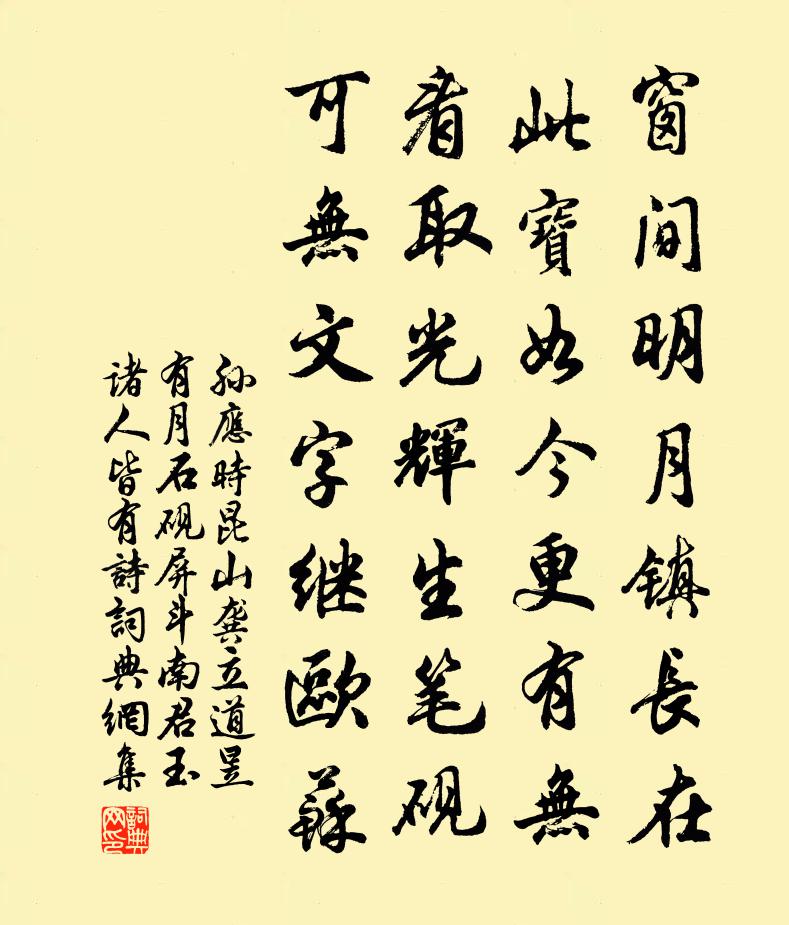 窗间明月镇長在
此寶如今更有無
看取光輝生笔硯
可無文字继歐蘇
孙應時昆山龚立道昱
有月石硯屏斗南君玉
诸人皆有詩詞典網集
詞典網印